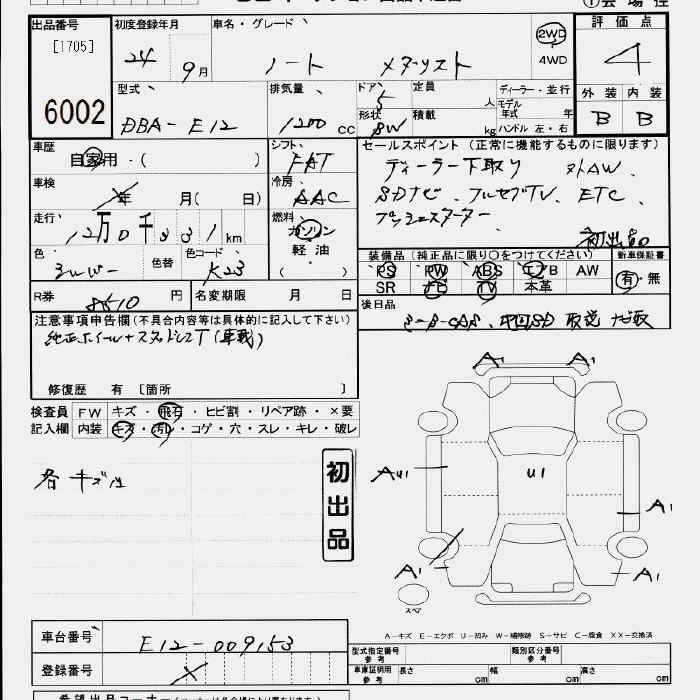 出品番号 初度登録年月 車名・グレード 評価点
[1705] 24 9月 ノート メダリスト 2WD 4WD 4
6002 型式 排気量 ドア 5 定員 人 ディーラー・並行 外装 内装
DBA-E12 1200 CC 形状 SW 積載 kg モデル年式 年 ハンドル 左・右 B B
車歴 自家用・( ) シフト FAT セールスポイント (正常に機能するものに限ります)
ディーラー下取り 外AW、
車検 年 月( 日) 冷房 AAC SDナビ、フルセグTV、ETC、
プッシュスターター
走行 12万0千331km 燃料 ガソリン 軽油 ( ) 初出品
色 シルバー 色替 色コード K23 装備品 (純正品に限り○をつけてください) 新車保証書
PS PW ABS エアB AW 有・無
SR ナビ TV 本革
R券 8510円 名変期限 月 日 後日品
注意事項申告欄(不具合内容等は具体的に記入して下さい) 取説
純正ホイール+スタッドレスT(車載)
修復歴 有 〔箇所 〕
検査員 FW キズ・飛石・ヒビ割・リペア跡・×要
記入欄 内装 キズ・汚レ・コゲ・穴・スレ・キレ・破レ
各キズ
初出品
A1 A1
AU1 U1 A1
A1 A1
スペア
A-キズ E-エクボ U-凹み W-補修跡 S-サビ C-腐食 XX-交換済
車台番号 E12-009153 型式指定番号 参考 類別区分番号 参考
登録番号 車庫証明用 参考 長さ cm 幅 cm 高さ cm